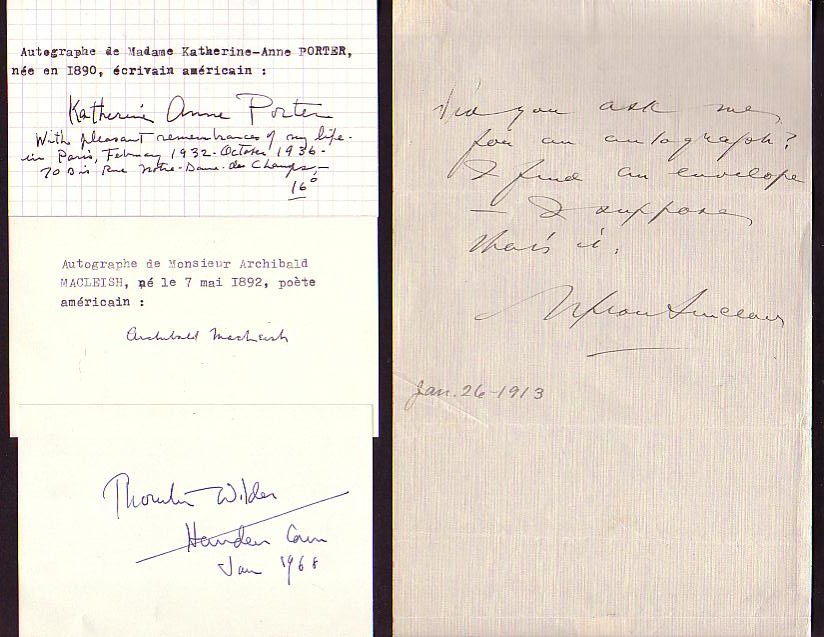 Autographe de Madame Katherine-Anne PORTER,
née en 1890, écrivain américain :
Katherine Anne Porter
With pleasant remembrances of my life
in Paris, February 1932 - October 1936 -
70 Bis Rue Notre-Dame-des Champs,
16
Autographe de Monsieur Archibald
MACLEISH, né le 7 mai 1892, poète
américain :
Archibald MacLeish
Thornton Wilder
Hamden Conn
Jan 1968
Did you ask me
for an autograph?
I find an envelope
— I suppose
that's it.
Upton Sinclair
Jan. 26-1913